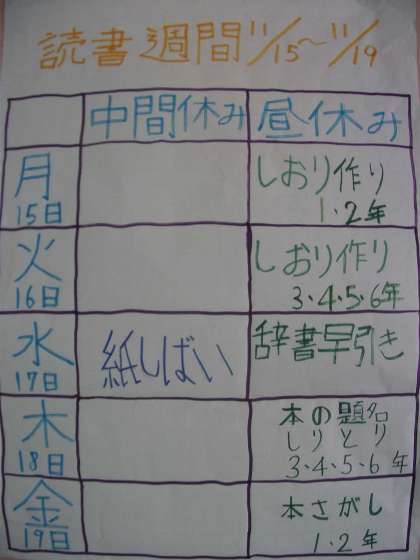 読書週間 11/15～11/19
中間休み 昼休み
月 15日
しおり作り
1・2年
火 16日
しおり作り
3・4・5・6年
水 17日
紙しばい
辞書早引き
木 18日
本の題名
しりとり
3・4・5・6年
金 19日
本さがし
1・2年